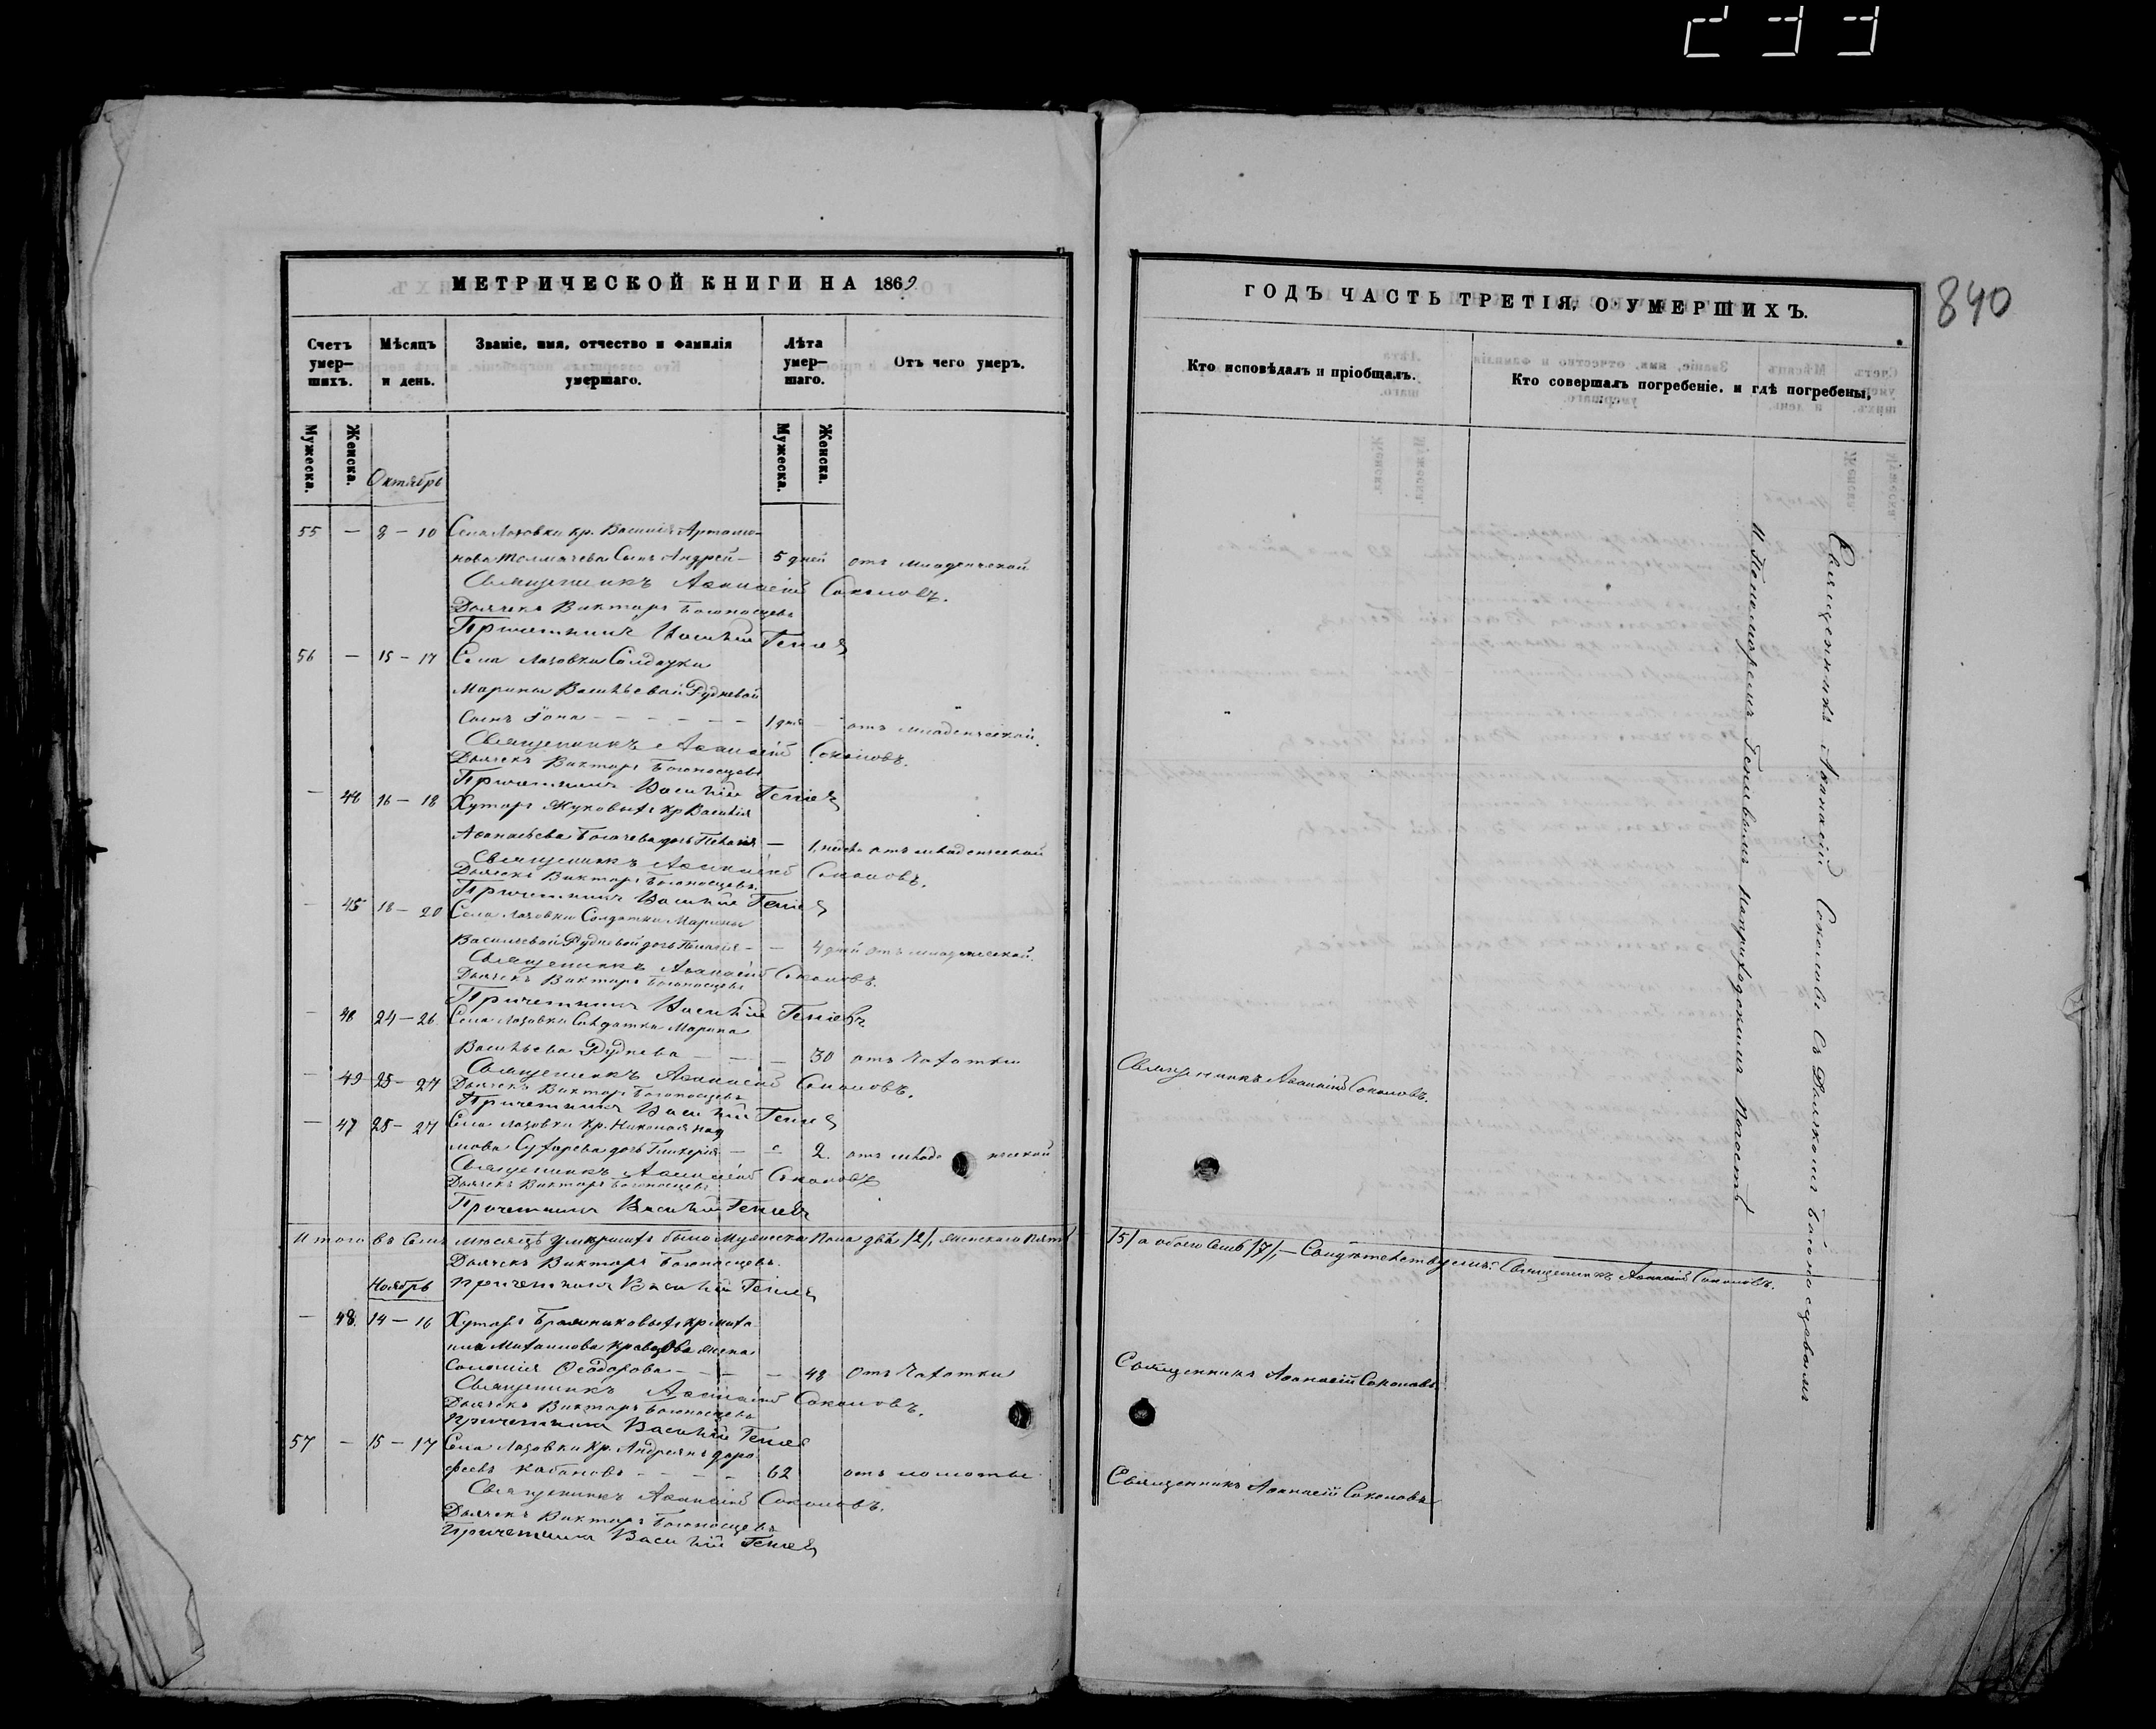 233
МЕТРИЧЕСКОЙ КНИГИ НА 1869
Счетъ умер—шихъ.
Мѣсяцъ и день.
Званіе, имя, отчество и фамилія умершаго.
Лѣта умер—шаго.
Отъ чего умеръ.
Мужеска.
Женска.
Мужеска.
Женска.
Октябрь
55 — 8 — 10 Села Лозовки кр. Василія Артамо-
нова Толмачева Сынъ Андрей — 5 дней отъ младенческой
Священникъ Аѳанасій Соколовъ.
Дьячекъ Викторъ Богоносцевъ
Причетникъ Василій
56 — 15 — 17 Села Лозовки Солдатки
Марины Васильевой Рудневой
Сынъ Іона — — — — — — отъ младенческой.
Священникъ Аѳанасій Соколовъ.
Дьячекъ Викторъ Богоносцевъ
Причетникъ Василій
— 44 16 — 18 Хутора Жуковыхъ кр Василія
Аѳанасьева дочь — отъ младенческой
Священникъ Аѳанасій Соколовъ.
Дьячекъ Викторъ Богоносцевъ.
Причетникъ Василій
— 45 18 — 20 Села Лозовки Солдатки Марины
Васильевой Рудневой дочь Пелагія — — 4 дней отъ младенческой.
Священникъ Аѳанасій Соколовъ.
Дьячекъ Викторъ Богоносцевъ
Причетникъ Василій
— 46 24 — 26 Села Лозовки Солдатка Марина
Васильева Руднева — — — 30 отъ чахотки
Священникъ Аѳанасій Соколовъ.
— 49 25 — 27 Дьячекъ Викторъ Богоносцевъ
Причетникъ Василій
— 47 25 — 27 Села Лозовки кр. Николая
дочь Гликерія — — 2. отъ младе нческой
Священникъ Аѳанасій Соколовъ
Дьячекъ Викторъ Богоносцевъ
Причетникъ Василій
Итого въ семъ мѣсяцѣ умершихъ было Мужеска Пола два /2/, Женскаго Пять
Дьячекъ Викторъ Богоносцевъ.
Ноябрь Причетникъ Василій
— 48. 14 — 16 Хутора кр Миха
ила Михаилова Кравцова жена
Соломія Ѳеодорова — — — 48 Отъ Чахотки
Священникъ Аѳанасій Соколовъ.
Дьячекъ Викторъ Богоносцевъ
Причетникъ Василій
57 — 15 — 17 Села Лозовки Кр. Андреянъ Доро
феевъ Кабановъ — — — — 62 отъ ломоты
Священникъ Аѳанасій Соколовъ.
Дьячекъ Викторъ Богоносцевъ
Причетникъ Василій
ГОДЪ ЧАСТЬ ТРЕТІЯ, О УМЕРШИХЪ.
840
Кто исповѣдалъ и пріобщалъ.
Кто совершалъ погребеніе, и гдѣ погребены,
Священникъ Аѳанасій Соколовъ.
/5/ а обоего Семь /7/, — Священникъ Аѳанасій Соколовъ.
Священникъ Аѳанасій Соколовъ
Священникъ Аѳанасій Соколовъ
Священникъ Аѳанасій Соколовъ съ Дьячкомъ Богоносцевымъ
и Пономоремъ на приходскомъ Погостѣ